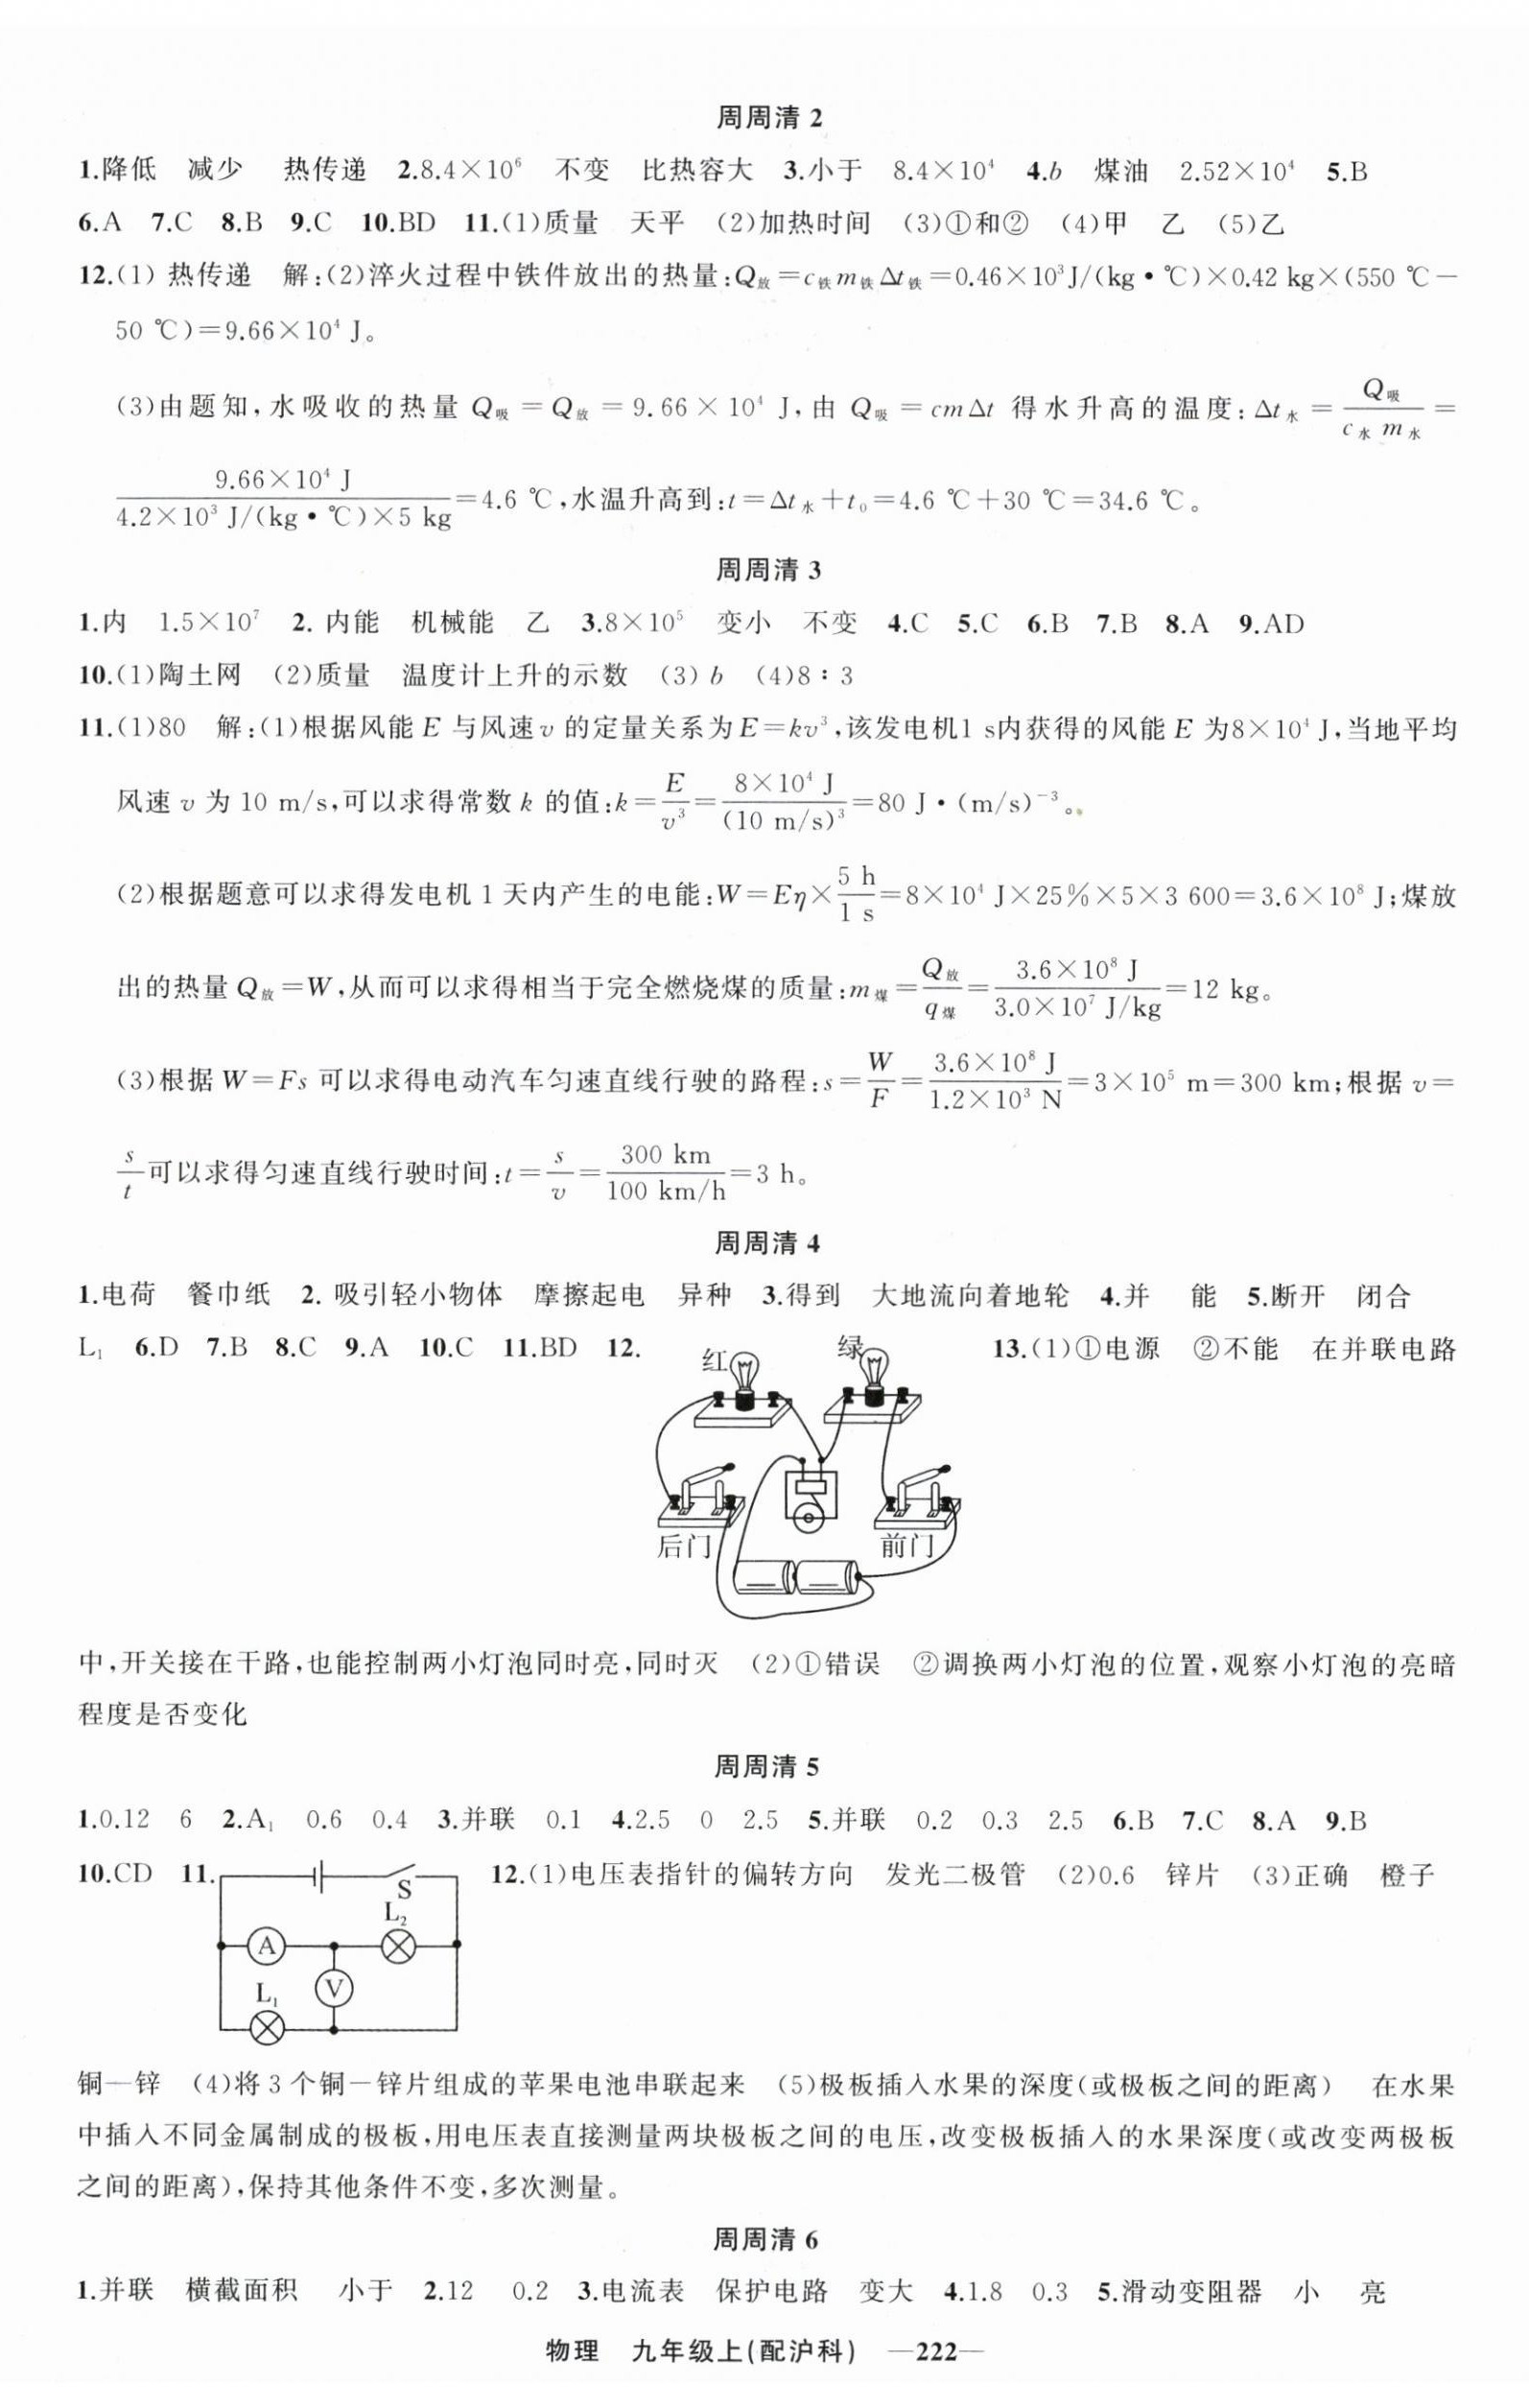 周周清 2
1.降低 减少 热传递 2.8.4×10⁶ 不变 比热容大 3.小于 8.4×10⁴ 4.b 煤油 2.52×10⁴ 5.B
6.A 7.C 8.B 9.C 10.BD 11.(1)质量 天平 (2)加热时间 (3)①和② (4)甲 乙 (5)乙
12.(1) 热传递 解:(2)淬火过程中铁件放出的热量:Q放=c铁m铁Δt铁=0.46×10³J/(kg·℃)×0.42 kg×(550 ℃-
50 ℃)=9.66×10⁴ J。
(3)由题知,水吸收的热量 Q吸=Q放=9.66×10⁴ J,由 Q吸=cmΔt 得水升高的温度:Δt水=Q吸/(c水m水)=
9.66×10⁴ J/(4.2×10³ J/(kg·℃)×5 kg)=4.6 ℃,水温升高到:t=Δt水+t₀=4.6 ℃+30 ℃=34.6 ℃。
周周清 3
1.内 1.5×10⁷ 2. 内能 机械能 乙 3.8×10⁵ 变小 不变 4.C 5.C 6.B 7.B 8.A 9.AD
10.(1)陶土网 (2)质量 温度计上升的示数 (3) b (4)8∶3
11.(1)80 解:(1)根据风能 E 与风速 v 的定量关系为 E=kv³,该发电机1 s内获得的风能 E 为8×10⁴ J,当地平均
风速 v 为 10 m/s,可以求得常数 k 的值:k=E/v³=8×10⁴ J/(10 m/s)³=80 J·(m/s)⁻³。
(2)根据题意可以求得发电机 1 天内产生的电能:W=Eη×5 h/1 s=8×10⁴ J×25%×5×3 600=3.6×10⁸ J;煤放
出的热量 Q放=W,从而可以求得相当于完全燃烧煤的质量:m煤=Q放/q煤=3.6×10⁸ J/3.0×10⁷ J/kg=12 kg。
(3)根据 W=Fs 可以求得电动汽车匀速直线行驶的路程:s=W/F=3.6×10⁸ J/1.2×10³ N=3×10⁵ m=300 km;根据 v=
s/t可以求得匀速直线行驶时间:t=s/v=300 km/100 km/h=3 h。
周周清 4
1.电荷 餐巾纸 2. 吸引轻小物体 摩擦起电 异种 3.得到 大地流向着地轮 4.并 能 5.断开 闭合
L₁ 6.D 7.B 8.C 9.A 10.C 11.BD 12. 红 绿 13.(1)①电源 ②不能 在并联电路
后门 前门
中,开关接在干路,也能控制两小灯泡同时亮,同时灭 (2)①错误 ②调换两小灯泡的位置,观察小灯泡的亮暗
程度是否变化
周周清 5
1.0.12 6 2.A₁ 0.6 0.4 3.并联 0.1 4.2.5 0 2.5 5.并联 0.2 0.3 2.5 6.B 7.C 8.A 9.B
10.CD 11. 12.(1)电压表指针的偏转方向 发光二极管 (2)0.6 锌片 (3)正确 橙子
S
L₂
A
V
L₁
铜—锌 (4)将 3 个铜—锌片组成的苹果电池串联起来 (5)极板插入水果的深度(或极板之间的距离) 在水果
中插入不同金属制成的极板,用电压表直接测量两块极板之间的电压,改变极板插入的水果深度(或改变两极板
之间的距离),保持其他条件不变,多次测量。
周周清 6
1.并联 横截面积 小于 2.12 0.2 3.电流表 保护电路 变大 4.1.8 0.3 5.滑动变阻器 小 亮
物理 九年级上(配沪科) —222—